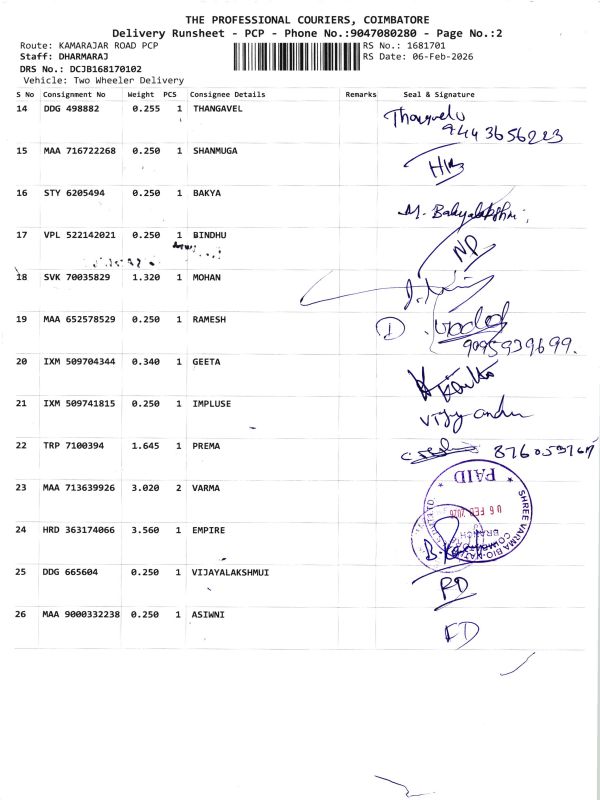 THE PROFESSIONAL COURIERS, COIMBATORE
Delivery Runsheet - PCP - Phone No.:9047080280 - Page No.:2
Route: KAMARAJAR ROAD PCP RS No.: 1681701
Staff: DHARMARAJ RS Date: 06-Feb-2026
DRS No.: DCJB168170102
Vehicle: Two Wheeler Delivery
S No Consignment No Weight PCS Consignee Details Remarks Seal & Signature
14 DDG 498882 0.255 1 THANGAVEL Thangavelu
9443656223
15 MAA 716722268 0.250 1 SHANMUGA
16 STY 6205494 0.250 1 BAKYA M. Bakyalakshmi
17 VPL 522142021 0.250 1 BINDHU NP
18 SVK 70035829 1.320 1 MOHAN
19 MAA 652578529 0.250 1 RAMESH 1
9095939699.
20 IXM 509704344 0.340 1 GEETA
21 IXM 509741815 0.250 1 IMPLUSE
22 TRP 7100394 1.645 1 PREMA
23 MAA 713639926 3.020 2 VARMA PAID
06 FEB 2026
SHREE VARMA BIO-NATURALS
BRANCH
24 HRD 363174066 3.560 1 EMPIRE
25 DDG 665604 0.250 1 VIJAYALAKSHMUI RD
26 MAA 9000332238 0.250 1 ASIWNI FD